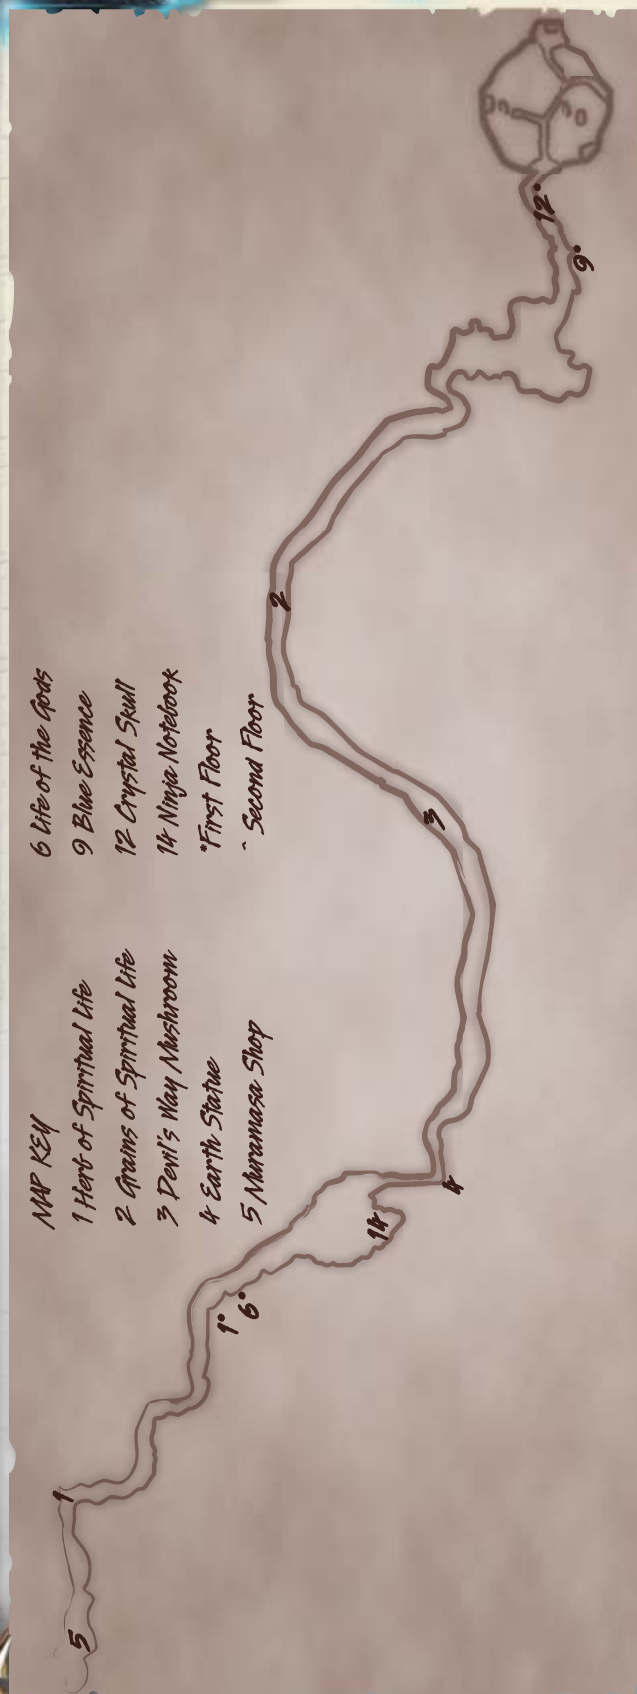 MAP KEY
1 Herb of Spiritual Life
2 Grains of Spiritual Life
3 Devil's Way Mushroom
4 Earth Statue
5 Muramasa Shop
6 Life of the Gods
9 Blue Essence
12 Crystal Skull
14 Ninja Notebook
*First Floor
^ Second Floor
5
1
1*
6*
14
4
3
2
9*
12*